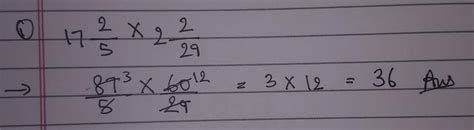 ① 17 2/5 × 2 2/29
→ 87³/5 × 60¹²/29 = 3 × 12 = 36 Ans